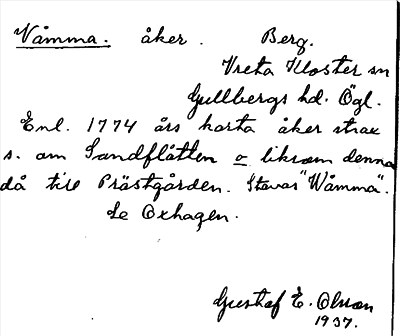 Våmma. åker. Berg.
Vreta Kloster sn
Gullbergs hd. Ögl.
Enl. 1774 års karta åker strax
s. om Sandflätten o liksom denna
då till Prästgården. Stavas "Wåmma".
Se Oxhagen.
Gustaf E. Olsson
1937.